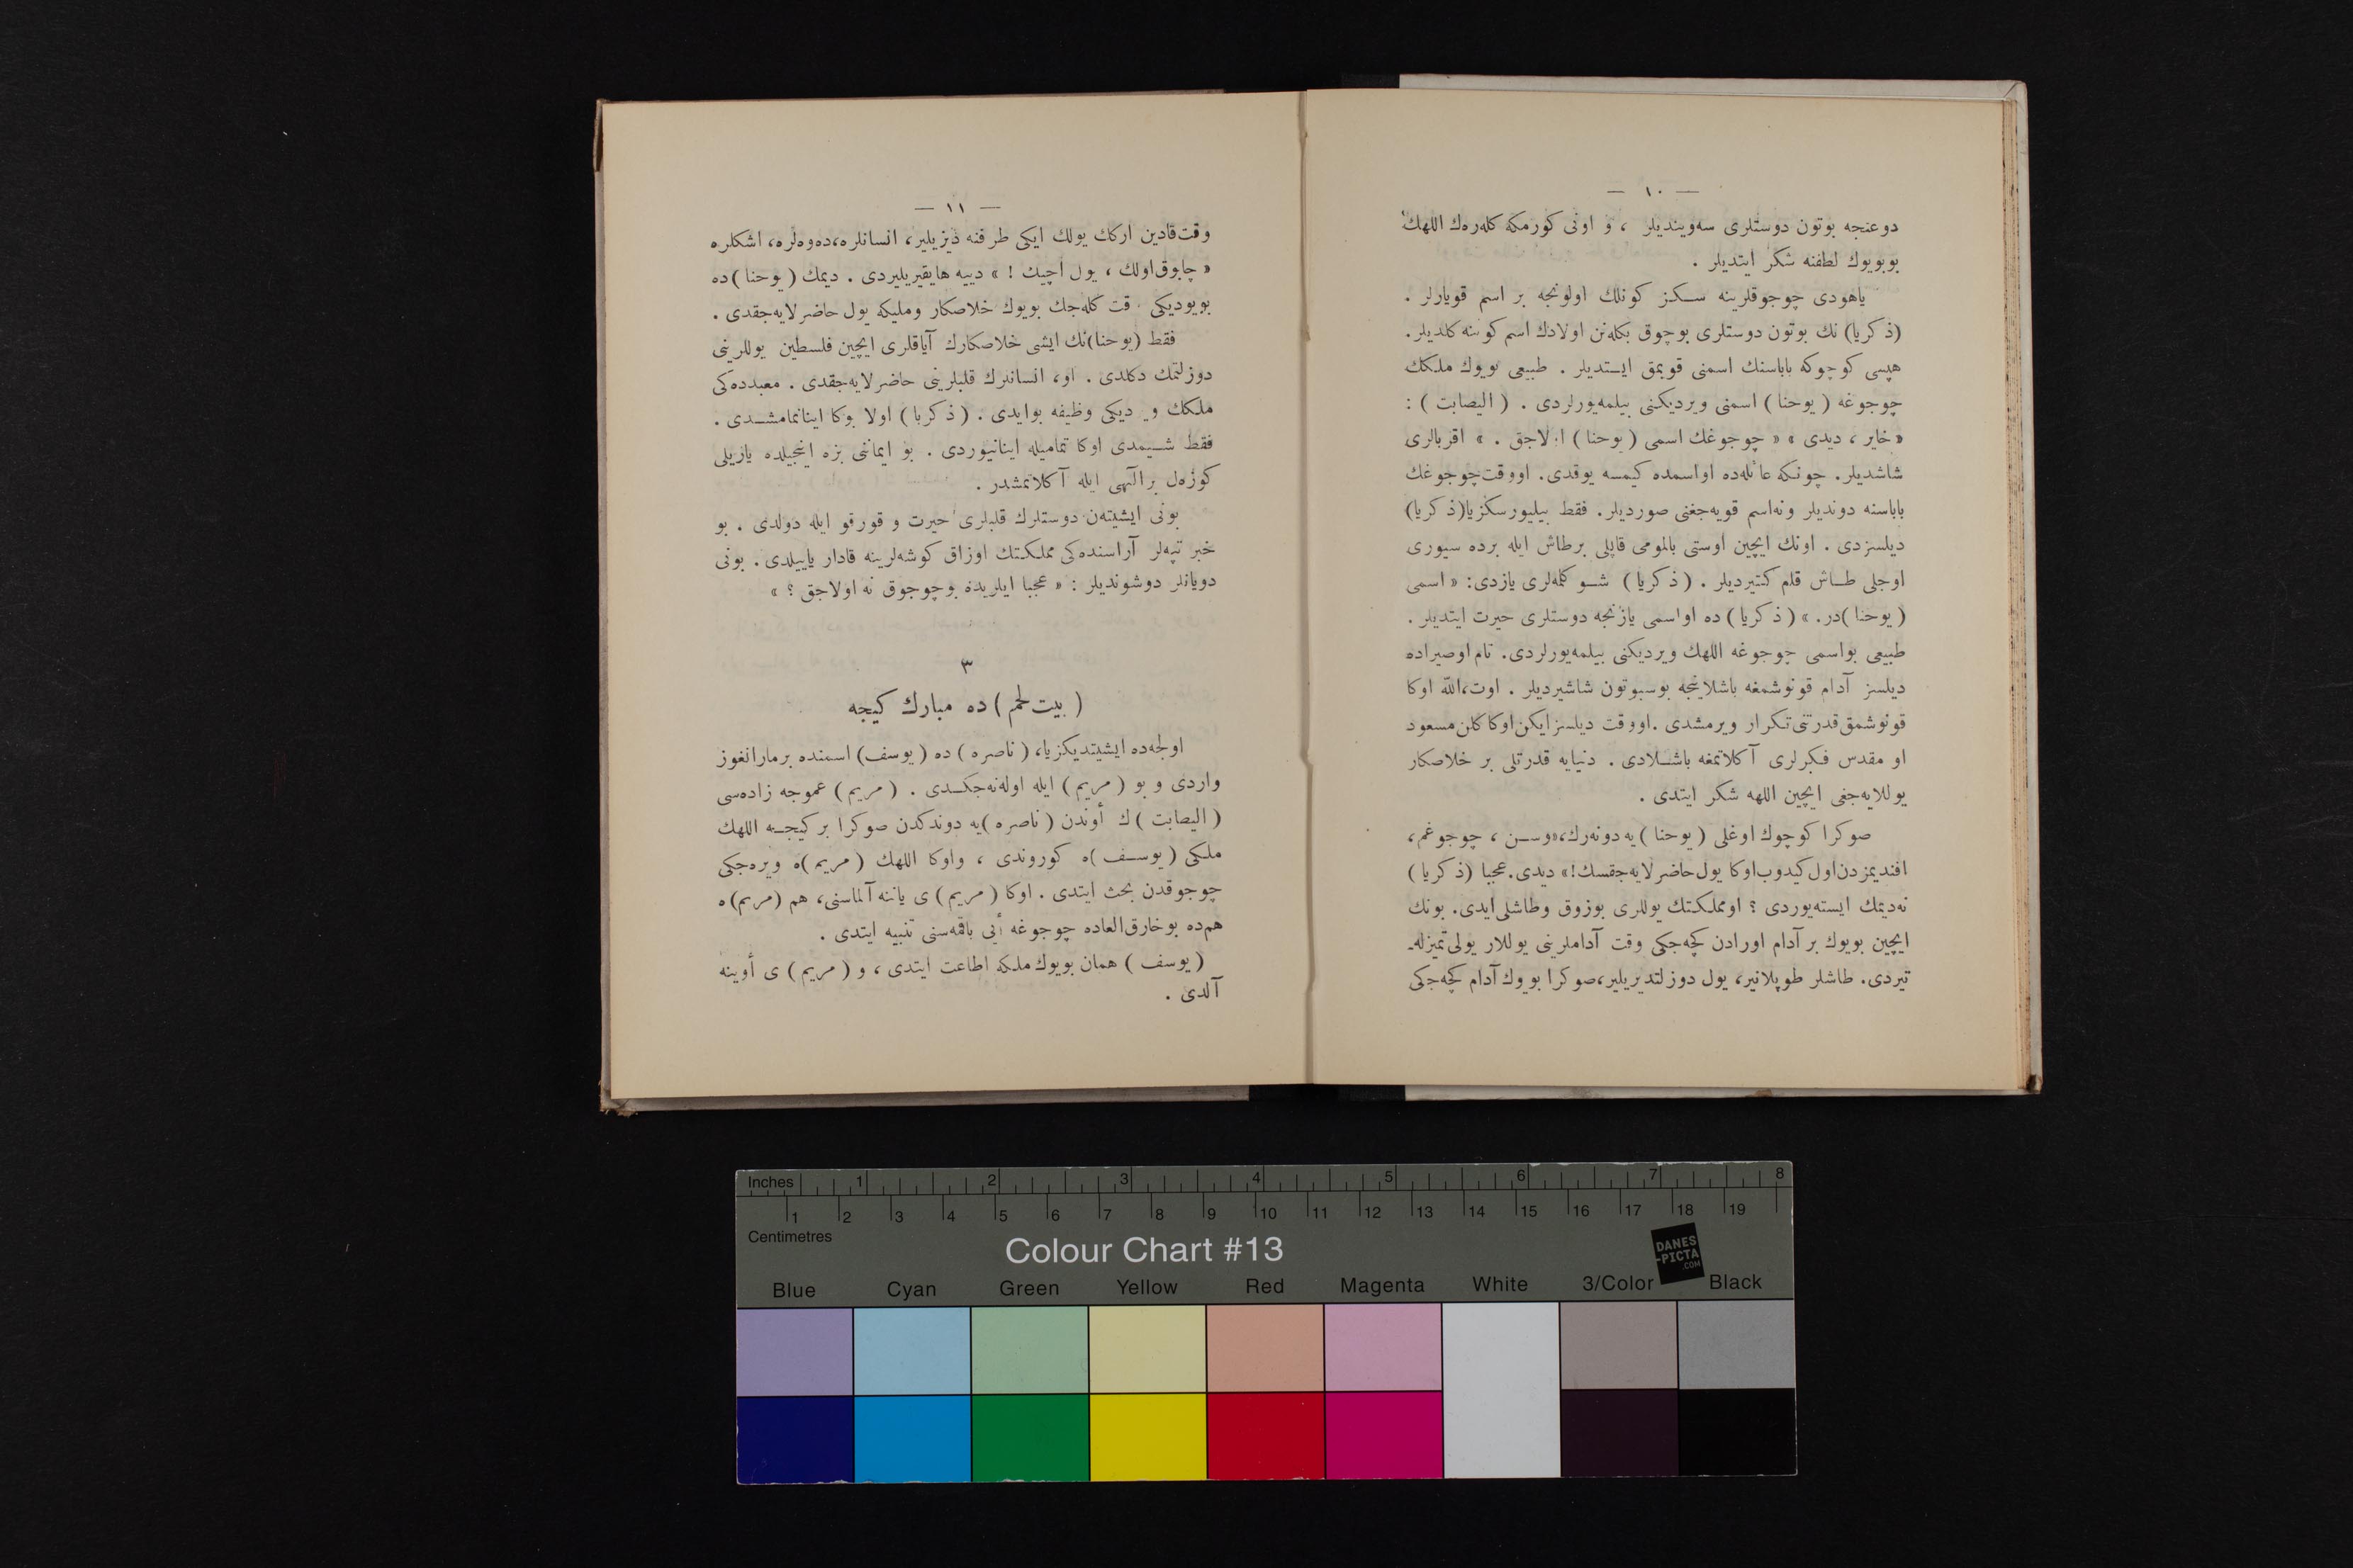 — ١٠ —
دوغنجه بوتون دوستلری سه‌ویندیلر ، و اونی كورمكه كله‌رك اللهك
بویوك لطفنه شكر ایتدیلر .
یاهودی چوجوقلرینه سكز كونلك اولونجه بر اسم قویارلر .
(ذكریا) نك بوتون دوستلری بوچوق بكله‌نن اولادك اسم كوننه كلدیلر.
هپسی كوچوكه باباسنك اسمنی قویمق ایستدیلر . طبیعی بویوك ملكك
چوجوغه ( یوحنا ) اسمنی ویردیكنی بیلمه‌یورلردی . ( الیصابت ) :
« خایر ، دیدی » « چوجوغك اسمی ( یوحنا ) اولاجق . » اقربالری
شاشدیلر. چونكه عائله‌ده اواسمده كیمسه یوقدی. اووقت‌چوجوغك
باباسنه دوندیلر ونه‌اسم قویه‌جغنی صوردیلر. فقط بیلیورسكزیا(ذكریا)
دیلسزدی . اونك ایچین اوستی بالمومی قاپلی برطاش ایله برده سیوری
اوجلی طاش قلم كتیردیلر . ( ذكریا ) شو كله‌لری یازدی: « اسمی
( یوحنا )در. » ( ذكریا ) ده اواسمی یازنجه دوستلری حیرت ایتدیلر .
طبیعی بواسمی چوجوغه اللهك ویردیكنی بیلمه‌یورلردی. تام اوصیراده
دیلسز آدام قونوشمغه باشلاینجه بوسبوتون شاشیردیلر . اوت،الله اوكا
قونوشمق‌قدرتنی تكرار ویرمشدی .اووقت دیلسزایكن‌اوكاكلن‌مسعود
او مقدس فكرلری آكلاتمغه باشلادی . دنیایه قدرتلی بر خلاصكار
یوللایه‌جغی ایچین اللهه شكر ایتدی .
صوكرا كوچوك اوغلی ( یوحنا )یه دونه‌رك،«وسن ، چوجوغم،
افندیمزدن‌اول‌كیدوب‌اوكا یول‌حاضرلایه‌جقسك!» دیدی.عجبا (ذكریا )
نه‌دیمك ایسته‌یوردی ؟ اومملكتك یوللری بوزوق وطاشلی‌ایدی. بونك
ایچین بویوك بر آدام اورادن كچه‌جكی وقت آداملرینی یوللار یولی‌تمیزله-
تیردی. طاشلر طوپلانیر، یول دوزلتدیریلیر،صوكرا بویوك آدام كچه‌جكی
— ١١ —
وقت‌قادین اركك یولك ایكی طرفنه دیزیلیر، انسانلره،ده‌وه‌لره، اشكلره
« چابوق‌اولك ، یول آچیك ! » دییه هایقیریلیردی . دیمك ( یوحنا )ده
بویودیكی وقت كله‌جك بویوك خلاصكار وملیكه یول حاضرلایه‌جقدی .
فقط (یوحنا)نك ایشی خلاصكارك آیاقلری ایچین فلسطین یوللرینی
دوزلتمك دكلدی . او، انسانلرك قلبلرینی حاضرلایه‌جقدی . معبدده‌كی
ملكك ویردیكی وظیفه بوایدی . ( ذكریا ) اولا بوكا اینانمامشدی .
فقط شیمدی اوكا تمامیله اینانیوردی . بو ایماننی بزه انجیلده یازیلی
كوزه‌ل برالٓهی ایله آكلاتمشدر .
بونی ایشیته‌ن دوستلرك قلبلری حیرت و قورقو ایله دولدی . بو
خبر تپه‌لر آراسنده‌كی مملكتك اوزاق كوشه‌لرینه قادار یاییلدی. بونی
دویانلر دوشوندیلر : « عجبا ایلریده بوچوجوق نه اولاجق ؟ »
٣
( بیت‌لحم ) ده مبارك كیجه
اولجه‌ده ایشیتدیكزیا، ( ناصره ) ده ( یوسف) اسمنده برمارانغوز
واردی و بو ( مریم ) ایله اوله‌نه‌جكدی . ( مریم ) عموجه زاده‌سی
( الیصابت )ك أوندن ( ناصره )یه دوندكدن صوكرا بركیجه اللهك
ملكی ( یوسف )ه كوروندی ، واوكا اللهك ( مریم )ه ویره‌جكی
چوجوقدن بحث ایتدی . اوكا ( مریم ) ی یاننه آلماسنی، هم (مریم)ه
هم‌ده بوخارق‌العاده چوجوغه أیی باقمه‌سنی تنبیه ایتدی .
( یوسف ) همان بویوك‌ملكه اطاعت ایتدی ، و ( مریم ) ی أوینه
آلدی .
Inches 1 2 3 4 5 6 7 8
1 2 3 4 5 6 7 8 9 10 11 12 13 14 15 16 17 18 19
Centimetres
Colour Chart #13
DANES
-PICTA
.COM
Blue Cyan Green Yellow Red Magenta White 3/Color Black